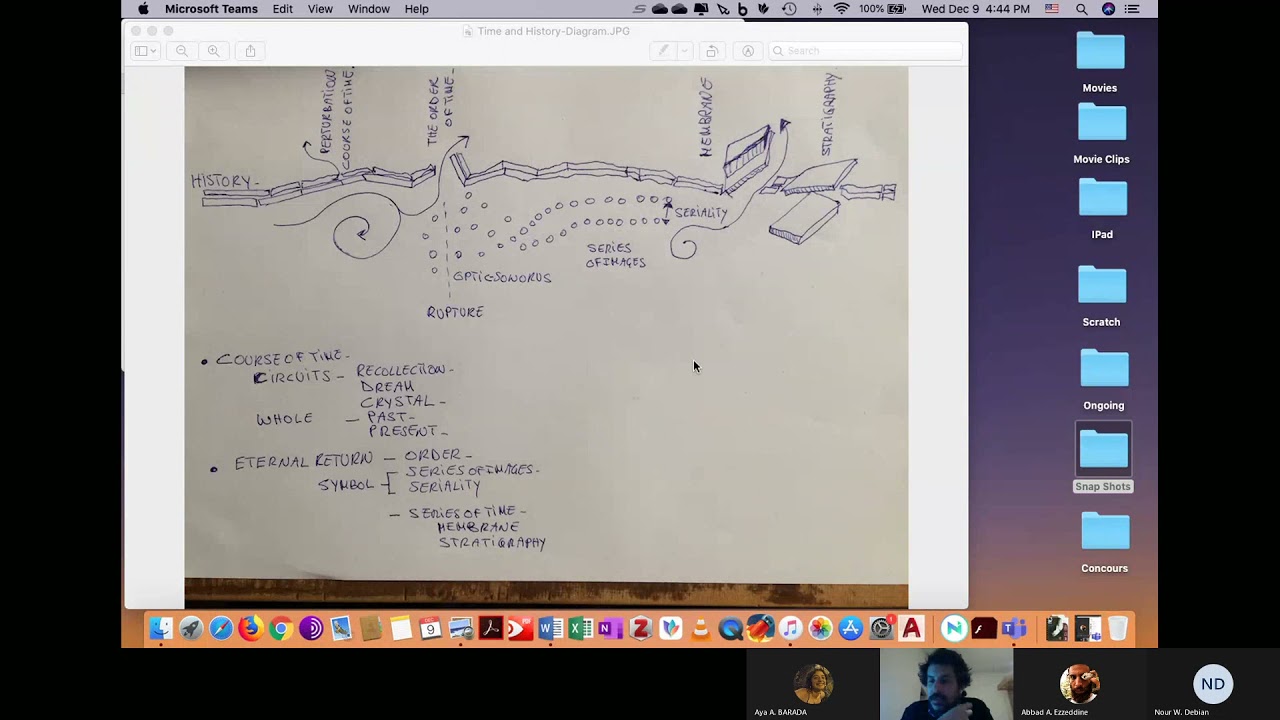 Microsoft Teams Edit View Window Help 100% Wed Dec 9 4:44 PM
Time and History-Diagram.JPG
Search
PERTURBATION
COURSE OF TIME.
THE ORDER
OF TIME-
MEMBRANE
STRATIGRAPHY
HISTORY-
SERIALITY
SERIES
OF IMAGES
OPTIC-SONORUS
RUPTURE
• COURSE OF TIME-
CIRCUITS - RECOLLECTION-
DREAM
CRYSTAL-
WHOLE - PAST-
PRESENT-
• ETERNAL RETURN - ORDER-
SYMBOL - SERIES OF IMAGES-
SERIALITY
- SERIES OF TIME-
MEMBRANE
STRATIGRAPHY
Movies
Movie Clips
IPad
Scratch
Ongoing
Snap Shots
Concours
DEC
9
Aya A. BARADA
Abbad A. Ezzeddine
ND
Nour W. Debian